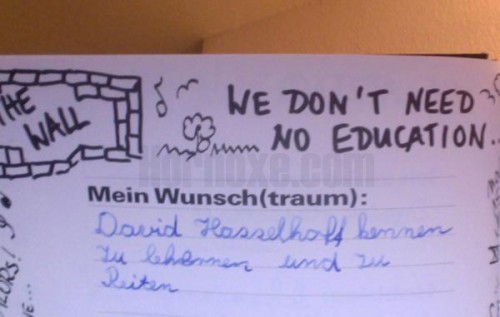 THE
WALL
WE DON'T NEED
NO EDUCATION..
Mein Wunsch(traum):
David Hasselhoff kennen
zu lehrnen und zu
Reiten